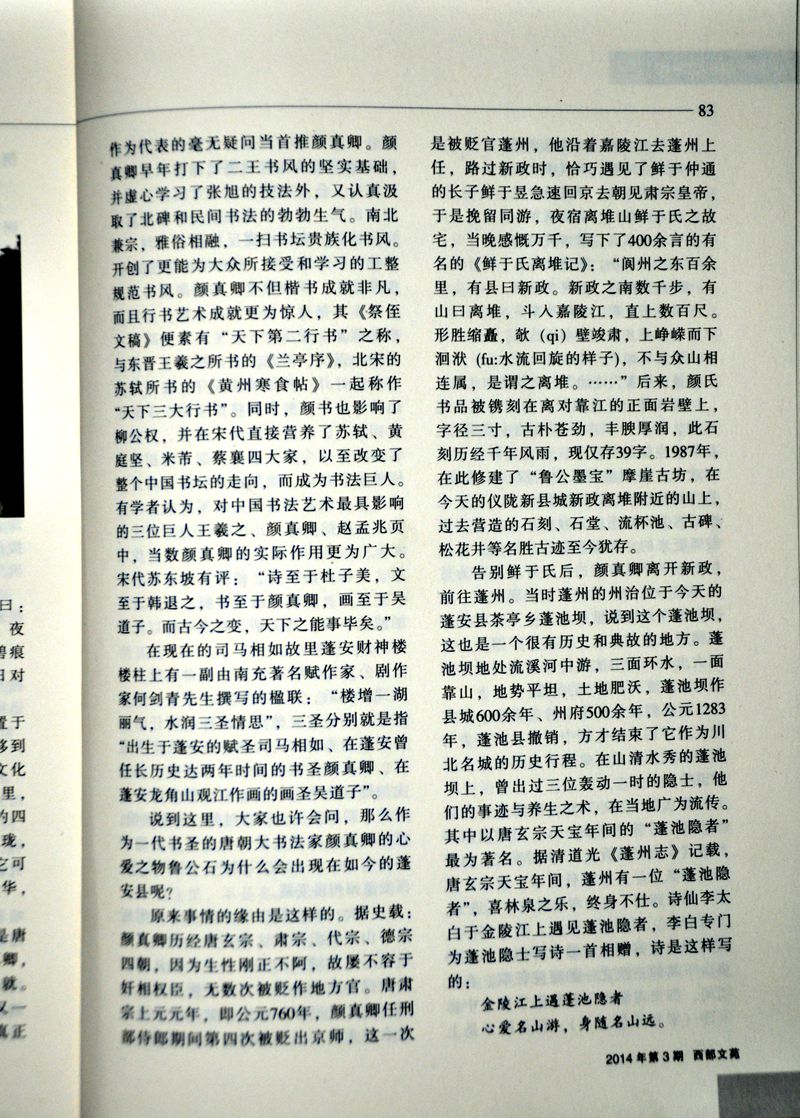 83
作为代表的毫无疑问当首推颜真卿。颜
真卿早年打下了二王书风的坚实基础，
并虚心学习了张旭的技法外，又认真汲
取了北碑和民间书法的勃勃生气。南北
兼宗，雅俗相融，一扫书坛贵族化书风。
开创了更能为大众所接受和学习的工整
规范书风。颜真卿不但楷书成就非凡，
而且行书艺术成就更为惊人，其《祭侄
文稿》便素有“天下第二行书”之称，
与东晋王羲之所书的《兰亭序》，北宋的
苏轼所书的《黄州寒食帖》一起称作
“天下三大行书”。同时，颜书也影响了
柳公权，并在宋代直接营养了苏轼、黄
庭坚、米芾、蔡襄四大家，以至改变了
整个中国书坛的走向，而成为书法巨人。
有学者认为，对中国书法艺术最具影响
的三位巨人王羲之、颜真卿、赵孟兆页
中，当数颜真卿的实际作用更为广大。
宋代苏东坡有评：“诗至于杜子美，文
至于韩退之，书至于颜真卿，画至于吴
道子。而古今之变，天下之能事毕矣。”
在现在的司马相如故里蓬安财神楼
楼柱上有一副由南充著名赋作家、剧作
家何剑青先生撰写的楹联：“楼增一湖
丽气，水润三圣情思”，三圣分别就是指
“出生于蓬安的赋圣司马相如、在蓬安曾
任长历史达两年时间的书圣颜真卿、在
蓬安龙角山观江作画的画圣吴道子”。
说到这里，大家也许会问，那么作
为一代书圣的唐朝大书法家颜真卿的心
爱之物鲁公石为什么会出现在如今的蓬
安县呢？
原来事情的缘由是这样的。据史载：
颜真卿历经唐玄宗、肃宗、代宗、德宗
四朝，因为生性刚正不阿，故屡不容于
奸相权臣，无数次被贬作地方官。唐肃
宗上元元年，即公元760年，颜真卿任刑
部侍郎期间第四次被贬出京师，这一次
是被贬官蓬州，他沿着嘉陵江去蓬州上
任，路过新政时，恰巧遇见了鲜于仲通
的长子鲜于昱急速回京去朝见肃宗皇帝，
于是挽留同游，夜宿离堆山鲜于氏之故
宅，当晚感慨万千，写下了400余言的有
名的《鲜于氏离堆记》：“阆州之东百余
里，有县曰新政。新政之南数千步，有
山曰离堆，斗入嘉陵江，直上数百尺。
形胜缩矗，欹（qi）壁竣肃，上峥嵘而下
洄洑（fu:水流回旋的样子），不与众山相
连属，是谓之离堆。……”后来，颜氏
书品被镌刻在离对靠江的正面岩壁上，
字径三寸，古朴苍劲，丰腴厚润，此石
刻历经千年风雨，现仅存39字。1987年，
在此修建了“鲁公墨宝”摩崖古坊，在
今天的仪陇新县城新政离堆附近的山上，
过去营造的石刻、石堂、流杯池、古碑、
松花井等名胜古迹至今犹存。
告别鲜于氏后，颜真卿离开新政，
前往蓬州。当时蓬州的州治位于今天的
蓬安县茶亭乡蓬池坝，说到这个蓬池坝，
这也是一个很有历史和典故的地方。蓬
池坝地处流溪河中游，三面环水，一面
靠山，地势平坦，土地肥沃，蓬池坝作
县城600余年、州府500余年，公元1283
年，蓬池县撤销，方才结束了它作为川
北名城的历史行程。在山清水秀的蓬池
坝上，曾出过三位轰动一时的隐士，他
们的事迹与养生之术，在当地广为流传。
其中以唐玄宗天宝年间的“蓬池隐者”
最为著名。据清道光《蓬州志》记载，
唐玄宗天宝年间，蓬州有一位“蓬池隐
者”，喜林泉之乐，终身不仕。诗仙李太
白于金陵江上遇见蓬池隐者，李白专门
为蓬池隐士写诗一首相赠，诗是这样写
的：
金陵江上遇蓬池隐者
心爱名山游，身随名山远。
2014年第3期 西部文苑